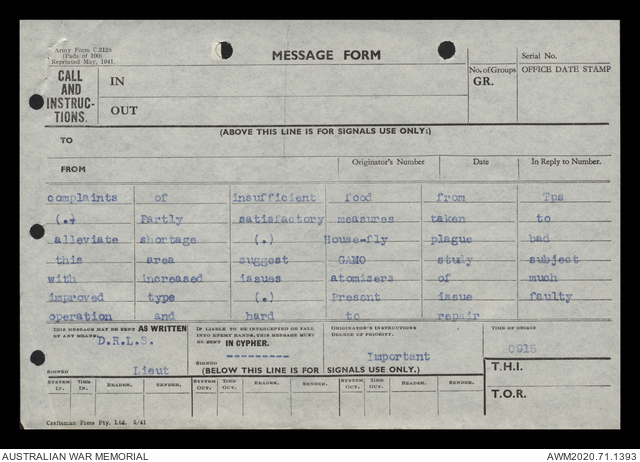 Army Form C.2128
(Pads of 100)
Reprinted May, 1941.
MESSAGE FORM
Serial No.
CALL AND INSTRUC- TIONS.
IN
OUT
No. of Groups GR.
OFFICE DATE STAMP
(ABOVE THIS LINE IS FOR SIGNALS USE ONLY:)
TO
FROM
Originator's Number
Date
In Reply to Number.
complaints of insufficient food from Tps
(.) Partly satisfactory measures taken to
alleviate shortage (.) House-fly plague bad
this area suggest GAMO study subject
with increased issues atomisers of much
improved type (.) Present issue faulty
operation and hard to repair
THIS MESSAGE MAY BE SENT AS WRITTEN BY ANY MEANS
D.R.L.S.
SIGNED Lieut
IF LIABLE TO BE INTERCEPTED OR FALL INTO ENEMY HANDS, THIS MESSAGE MUST BE SENT IN CYPHER.
----------
SIGNED
ORIGINATOR'S INSTRUCTIONS DEGREE OF PRIORITY.
Important
TIME OF ORIGIN
0915
(BELOW THIS LINE IS FOR SIGNALS USE ONLY.)
T.H.I.
T.O.R.
SYSTEM IN. TIME IN. READER. SENDER. SYSTEM OUT. TIME OUT. READER. SENDER. SYSTEM OUT. TIME OUT. READER. SENDER.
Craftsman Press Pty. Ltd. 5/41
AUSTRALIAN WAR MEMORIAL
AWM2020.71.1393